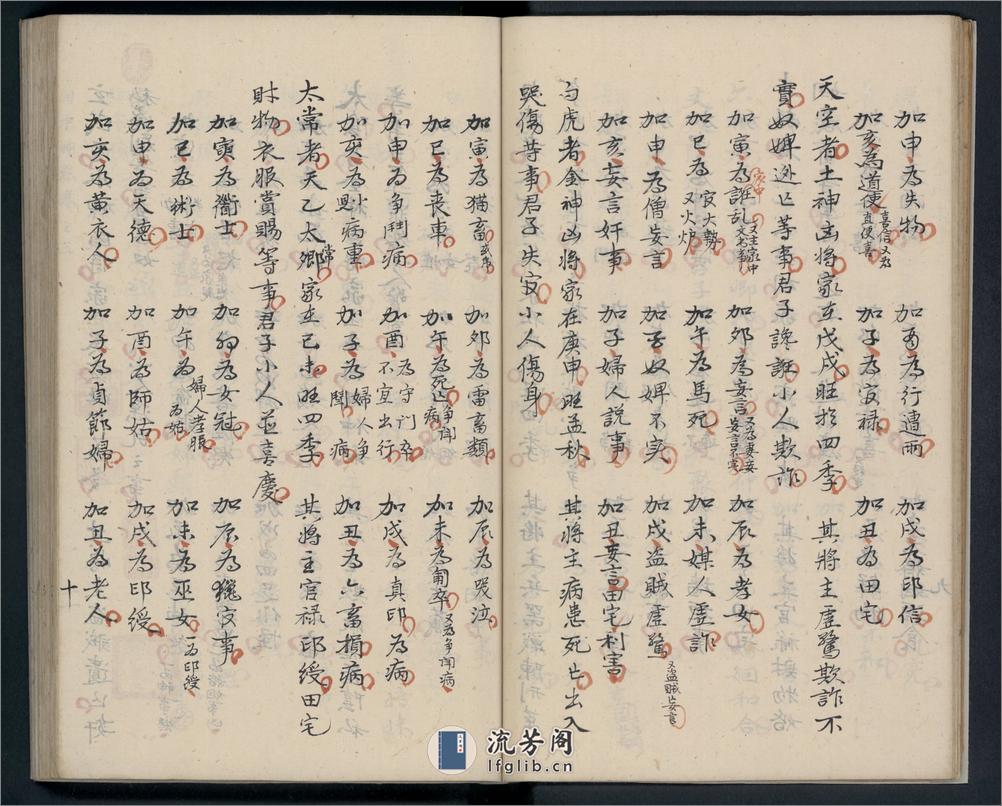 加申為失物 加酉為行遭雨 加戌為印信
加亥為道使 喜信又為直使喜 加子為官祿 加丑為田宅
天空者土神凶將家在戊戌旺於四季 其將主虛驚欺詐不
實奴婢逃亡等事君子讒誑小人欺詐
加寅為誑乱 又主家中文書事 加卯為妄言 又為妻妾妄言不實 加辰為孝女
加巳為 官火𭀰又火炉 加午為馬死 加未媒人虛詐
加申為僧妄言 加酉奴婢不實 加戌盜賊虛驚 又盜賊亡妄言
加亥妄言奸事 加子婦人説事 加丑妄言田宅利害
白虎者金神凶將家在庚申旺孟秋 其將主病患死亡出入
哭傷等事君子失官小人傷身
加寅為猫畜 加卯為雷畜類 加辰為哭泣
加巳為喪車 加午為死亡 爭鬪病 加未為匍卒 又為爭鬪病
加申為爭鬥病 加酉 為守門卒不宜出行 加戌為真印為病
加亥為 小児 病事 加子為 婦人爭鬪 病 加丑為六畜損病
太常者天乙太常卿家在已未旺四季 其將主官祿印綬田宅
財物衣服賞賜等事君子小人並喜慶
加寅為衛士 加卯為女冠 加辰為獵官事
加巳為術士 加午為 婦人孝服為姑 加未為巫女 一為印綬
加申為天德 加酉為師姑 加戌為印綬
加亥為黃衣人 加子為貞節婦 加丑為老人
十
流芳阁
lfglib.cn